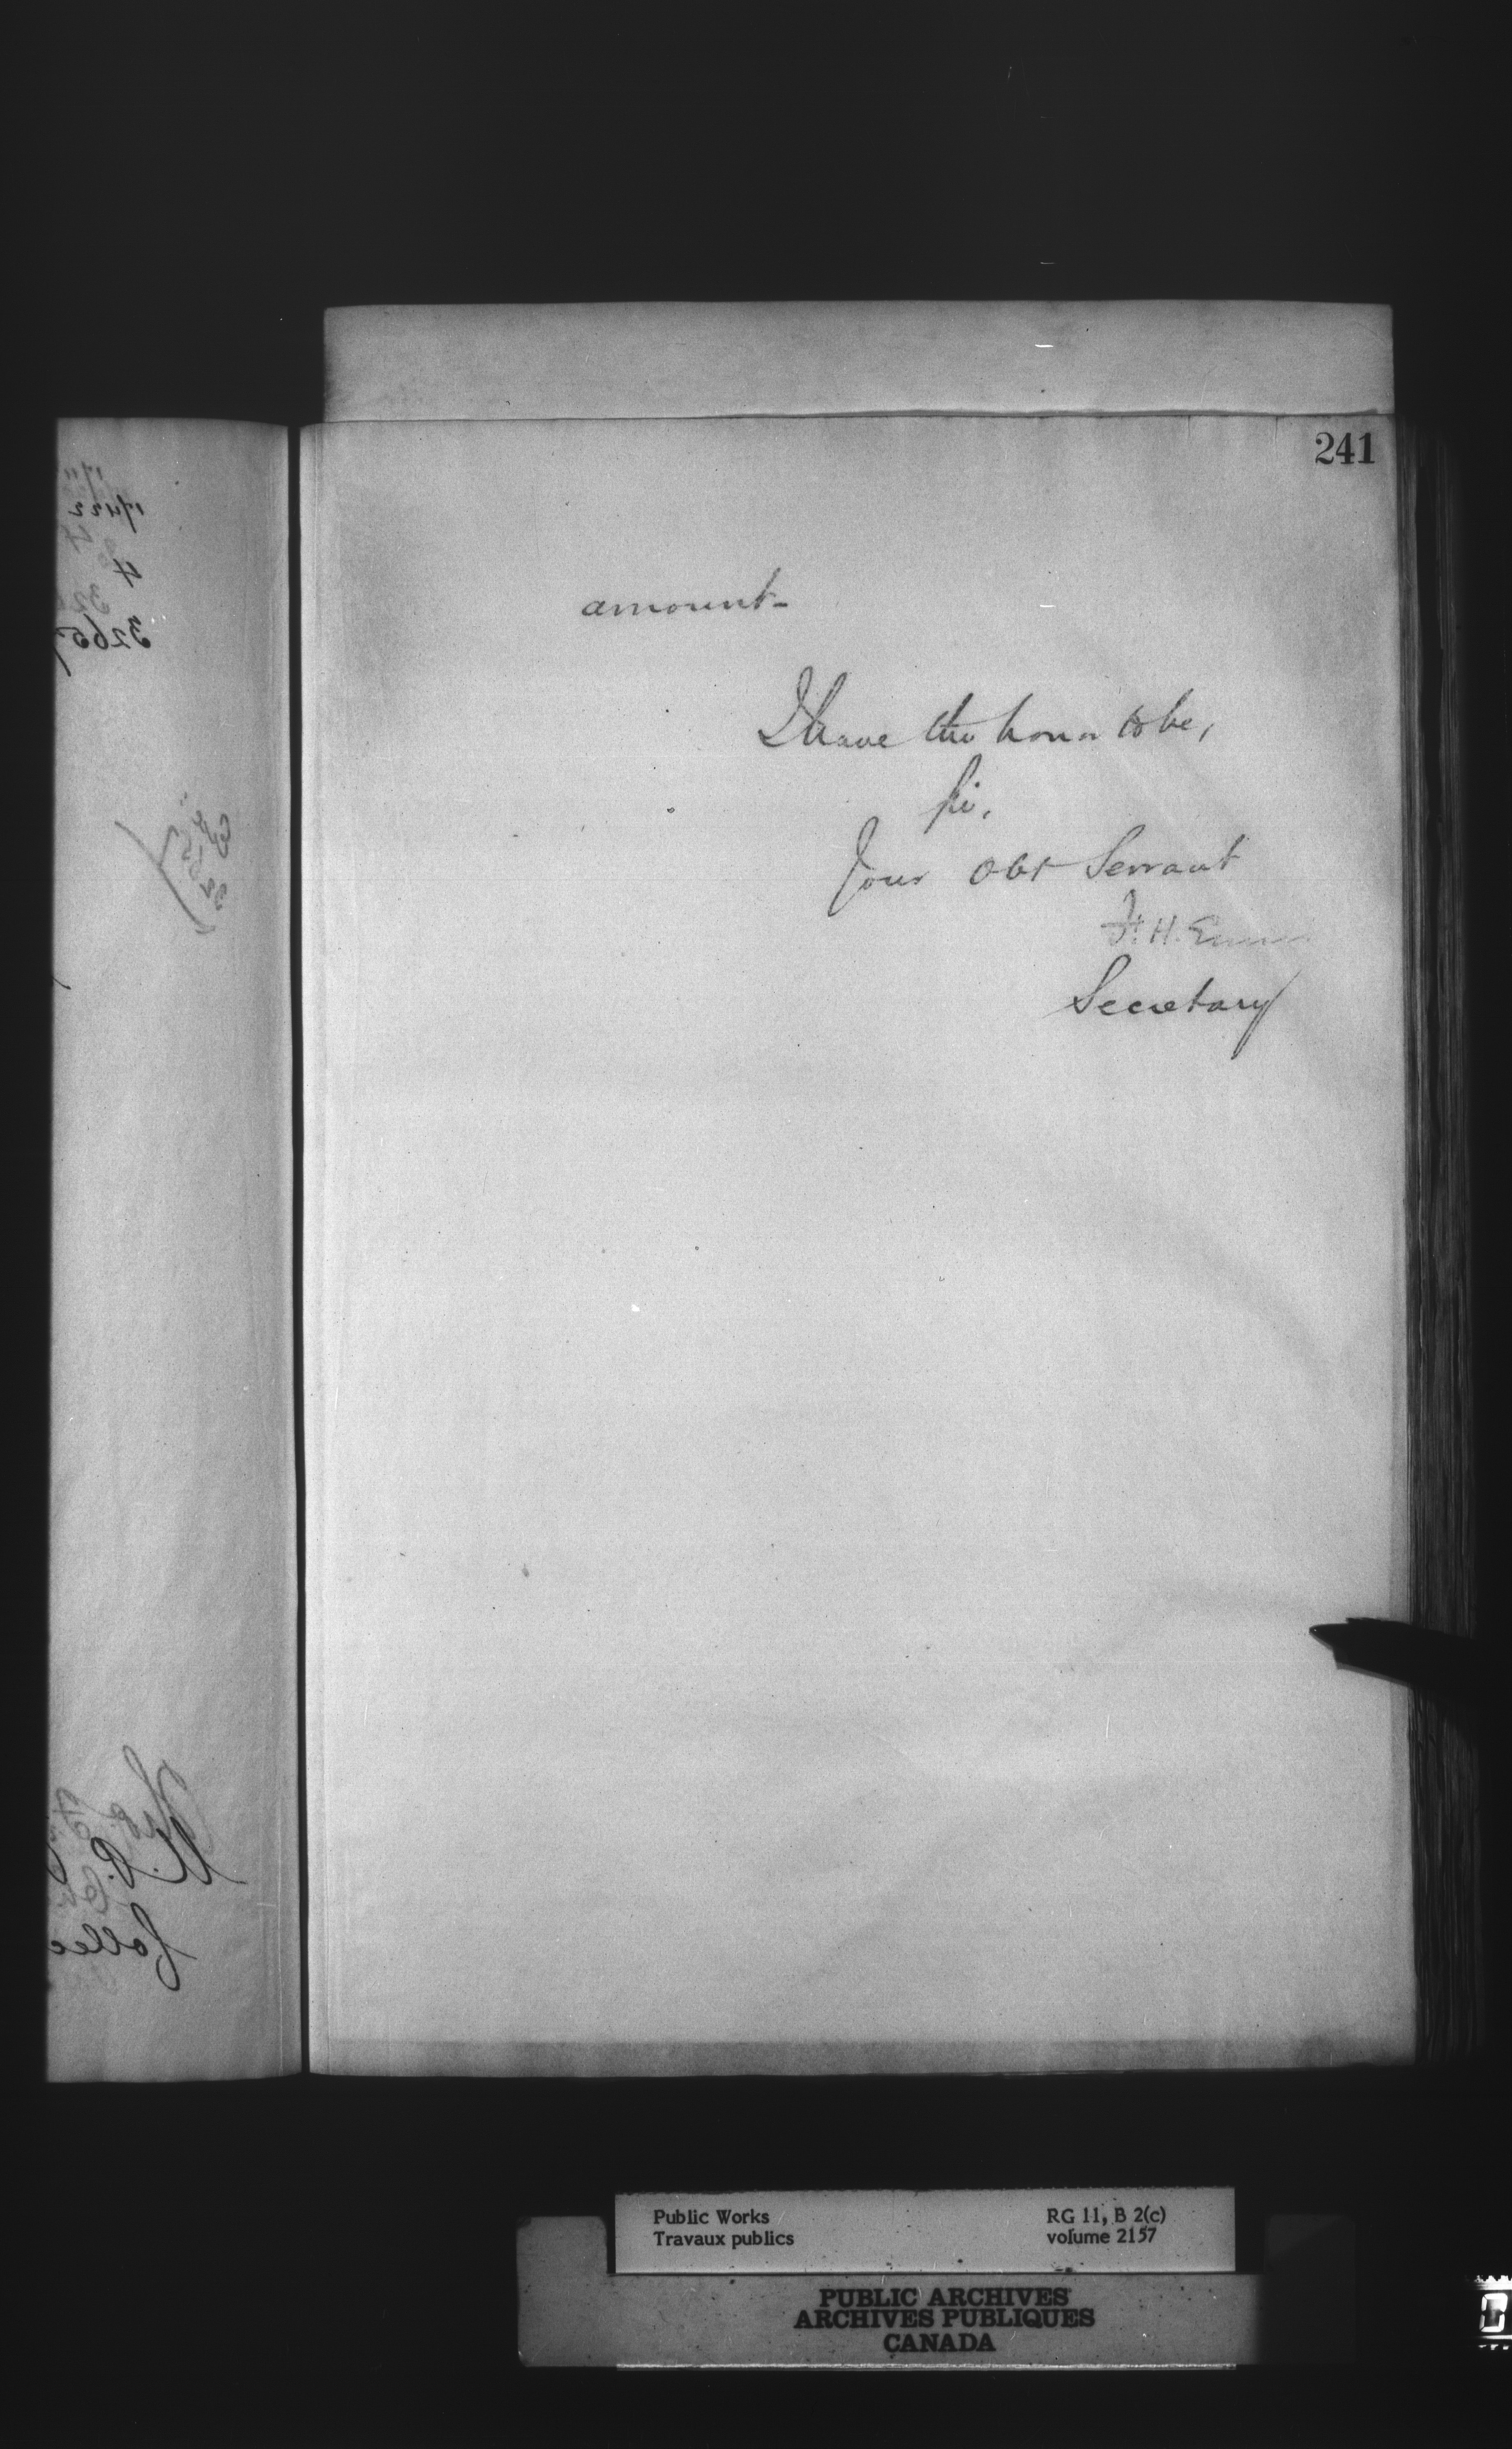 241
amount-
I have the honor to be,
Sir,
Your Obt Servant
F. H. Ennis
Secretary
1742 2
4
3265
Public Works
Travaux publics
RG 11, B 2(c)
volume 2157
PUBLIC ARCHIVES
ARCHIVES PUBLIQUES
CANADA